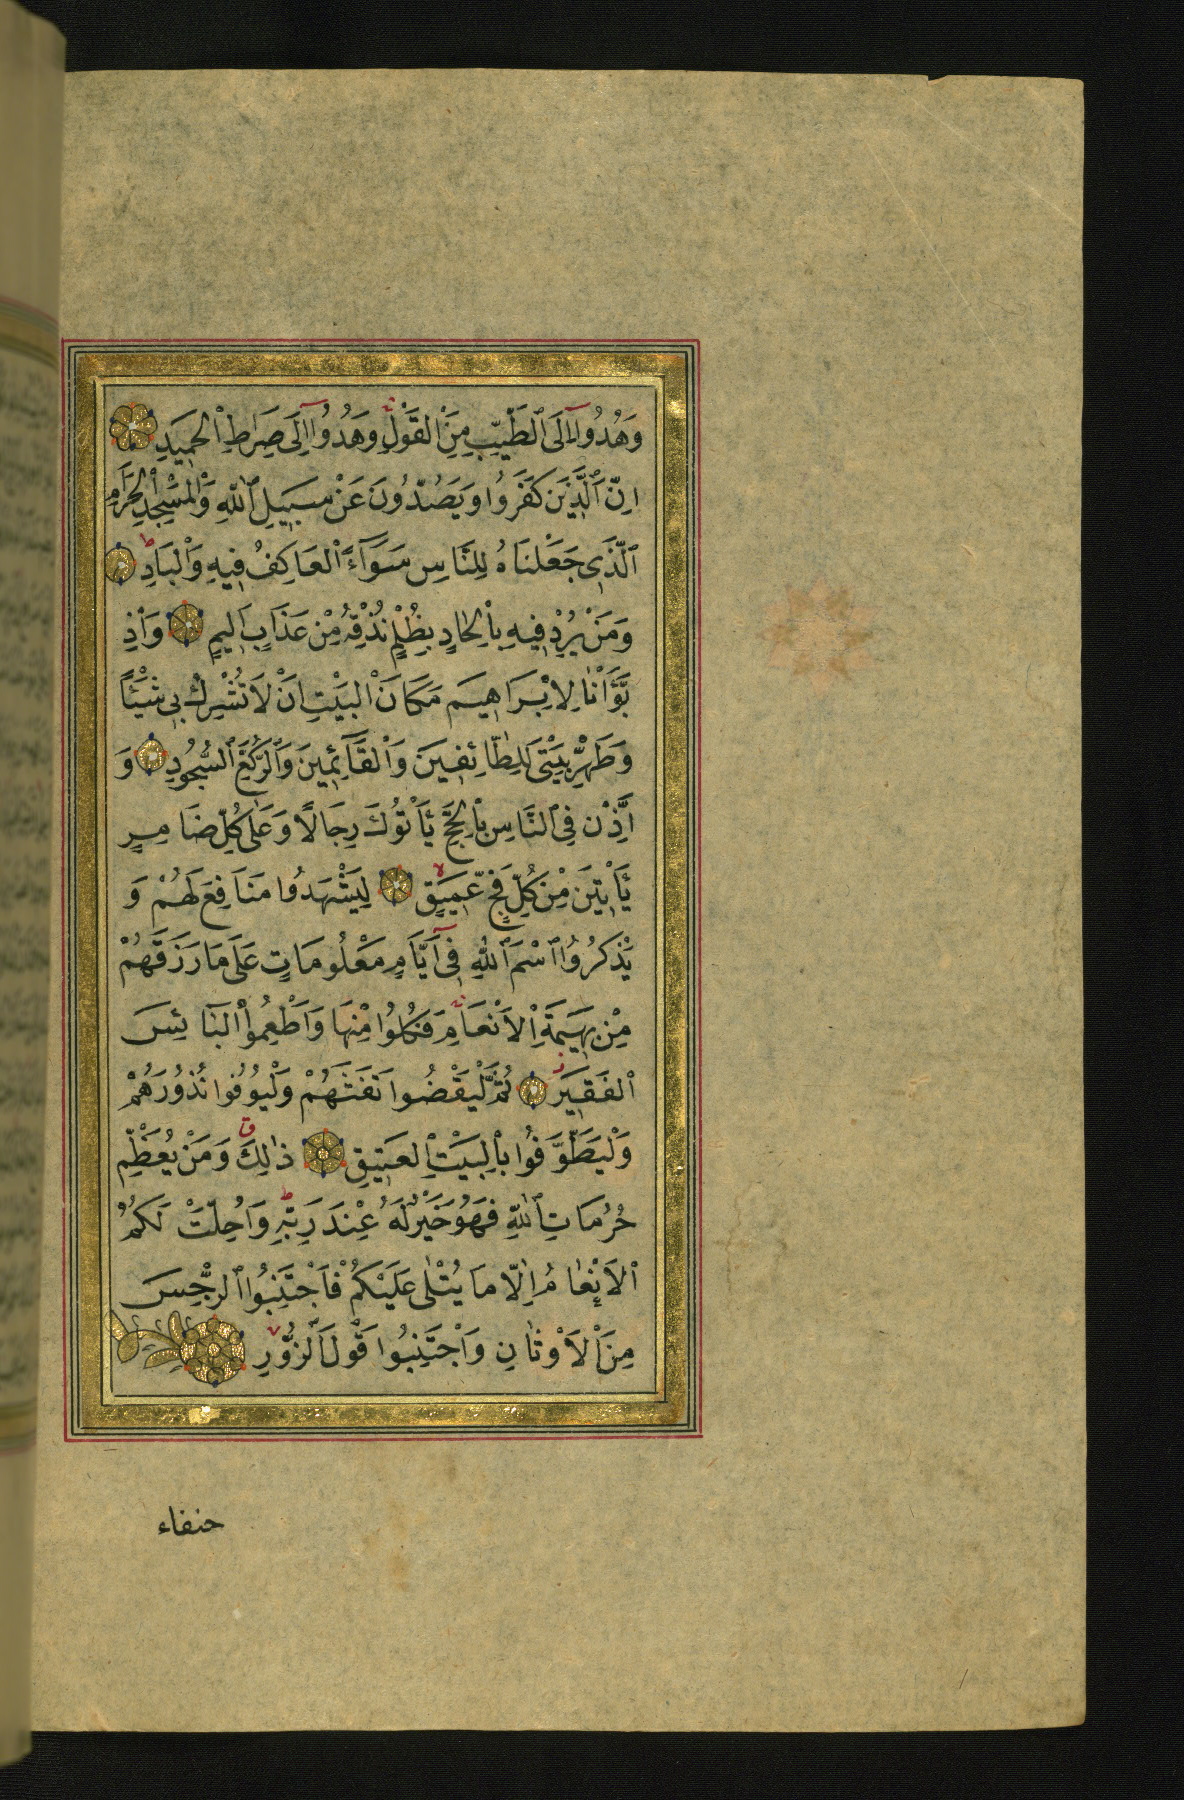 وَهُدُوا اِلَى ٱلطَّيِّبِ مِنَ ٱلْقَوْلِ وَهُدُوا اِلَى صِرَاطِ ٱلْحَمِيدِ
اِنَّ ٱلَّذِينَ كَفَرُوا وَيَصُدُّونَ عَنْ سَبِيلِ ٱللّٰهِ وَٱلْمَسْجِدِ ٱلْحَرَامِ
ٱلَّذِى جَعَلْنَاهُ لِلنَّاسِ سَوَآءً ٱلْعَاكِفُ فِيهِ وَٱلْبَادِ
وَمَنْ يُرِدْ فِيهِ بِاِلْحَادٍ بِظُلْمٍ نُذِقْهُ مِنْ عَذَابٍ اَلِيمٍ وَاِذْ
بَوَّأْنَا لِاِبْرَاهِيمَ مَكَانَ ٱلْبَيْتِ اَنْ لَا تُشْرِكْ بِى شَيْئًا
وَطَهِّرْ بَيْتِىَ لِلطَّائِفِينَ وَٱلْقَآئِمِينَ وَٱلرُّكَّعِ ٱلسُّجُودِ وَ
اَذِّنْ فِى ٱلنَّاسِ بِٱلْحَجِّ يَأْتُوكَ رِجَالًا وَعَلَى كُلِّ ضَامِرٍ
يَأْتِينَ مِنْ كُلِّ فَجٍّ عَمِيقٍ لِيَشْهَدُوا مَنَافِعَ لَهُمْ وَ
يَذْكُرُوا ٱسْمَ ٱللّٰهِ فِى اَيَّامٍ مَعْلُومَاتٍ عَلَى مَا رَزَقَهُمْ
مِنْ بَهِيمَةِ ٱلْاَنْعَامِ فَكُلُوا مِنْهَا وَاَطْعِمُوا ٱلْبَائِسَ
ٱلْفَقِيرَ ثُمَّ لْيَقْضُوا تَفَثَهُمْ وَلْيُوفُوا نُذُورَهُمْ
وَلْيَطَّوَّفُوا بِٱلْبَيْتِ ٱلْعَتِيقِ ذٰلِكَ وَمَنْ يُعَظِّمْ
حُرُمَاتِ ٱللّٰهِ فَهُوَ خَيْرٌ لَهُ عِنْدَ رَبِّهِ وَاُحِلَّتْ لَكُمُ
ٱلْاَنْعَامُ اِلَّا مَا يُتْلٰى عَلَيْكُمْ فَاجْتَنِبُوا ٱلرِّجْسَ
مِنَ ٱلْاَوْثَانِ وَاجْتَنِبُوا قَوْلَ ٱلزُّورِ
حنفاء